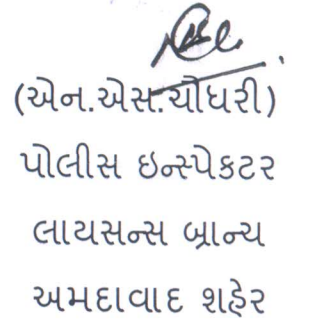 (એન.એસ.ચૌધરી)
પોલીસ ઇન્સ્પેકટર
લાયસન્સ બ્રાન્ચ
અમદાવાદ શહેર